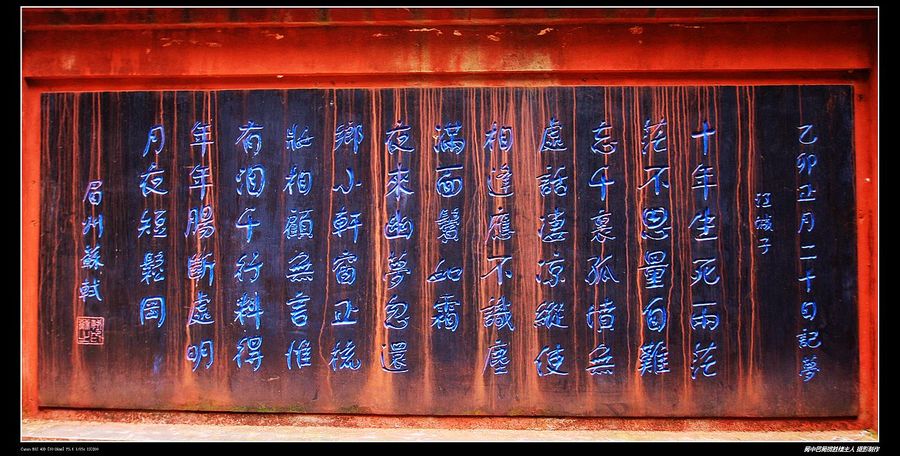 乙卯正月二十日記夢
江城子
十年生死兩茫
茫不思量自難
忘千裏孤墳無
處話淒涼縱使
相逢應不識塵
滿面鬢如霜
夜來幽夢忽還
鄉小軒窗正梳
妝相顧無言惟
有泪千行料得
年年腸斷處明
月夜短鬆岡
眉州蘇軾
摄影制作